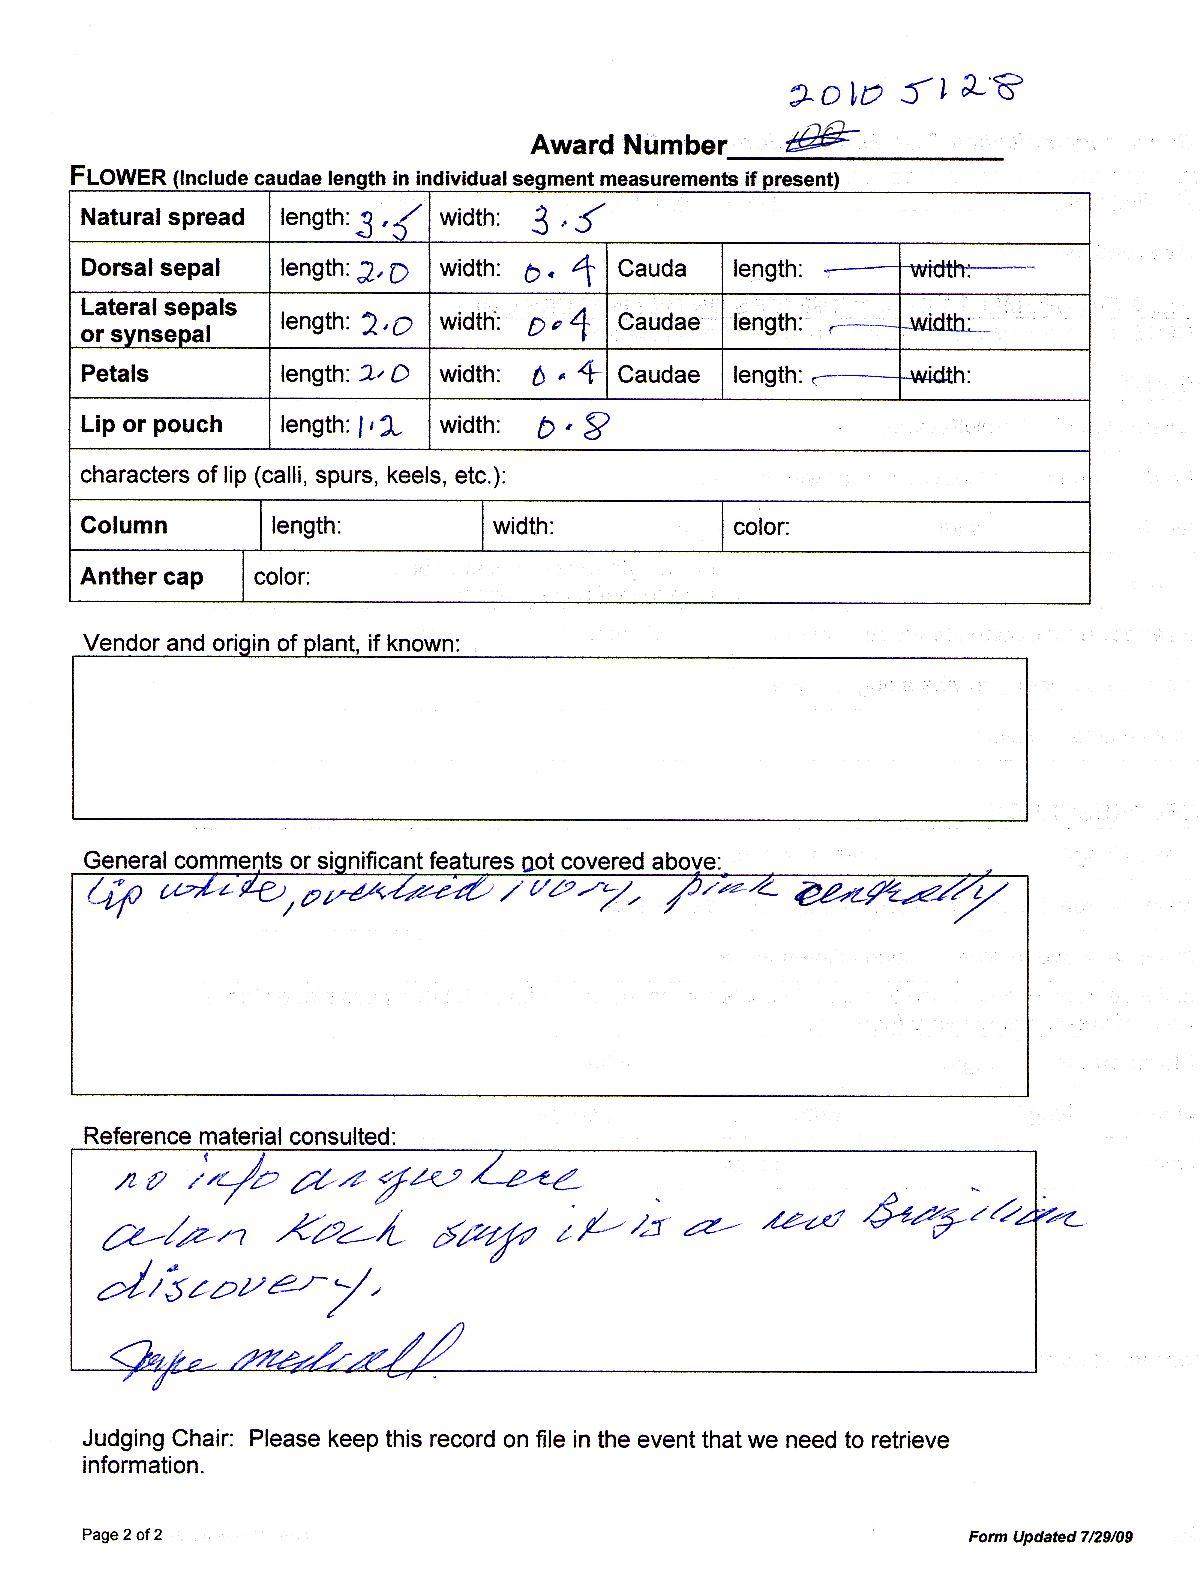 20105128
Award Number
FLOWER (Include caudae length in individual segment measurements if present)
Natural spread length: 3.5 width: 3.5
Dorsal sepal length: 2.0 width: 0.4 Cauda length: — width: —
Lateral sepals or synsepal length: 2.0 width: 0.4 Caudae length: — width: —
Petals length: 2.0 width: 0.4 Caudae length: — width:
Lip or pouch length: 1.2 width: 0.8
characters of lip (calli, spurs, keels, etc.):
Column length: width: color:
Anther cap color:
Vendor and origin of plant, if known:
General comments or significant features not covered above:
Lip white, overlaid ivory, pink centrally
Reference material consulted:
no info anywhere
alan Koch says it is a new Brazilian
discovery.
Judging Chair: Please keep this record on file in the event that we need to retrieve
information.
Page 2 of 2 Form Updated 7/29/09